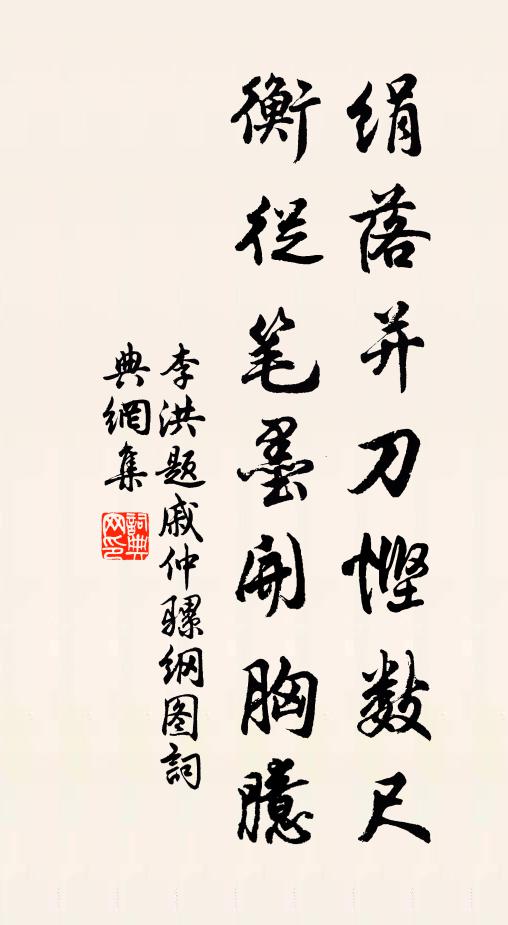 绢落并刀悭数尺
衡从笔墨开胸臆
李洪题戚仲骡纲图词
典網集
詞典
网印